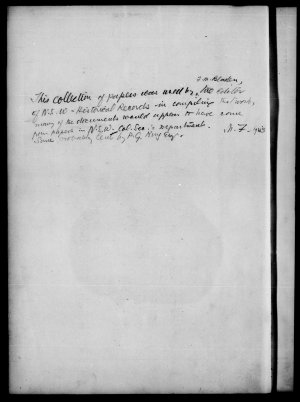 F. M. Bladen,
This collection of papers was used by the editor
of N.S.W. Historical Records in compiling that work,
many of the documents would appear to have come
from papers in N.S.W. Col. Sec.'s Department.
Some probably lent by P.G. King Esq.